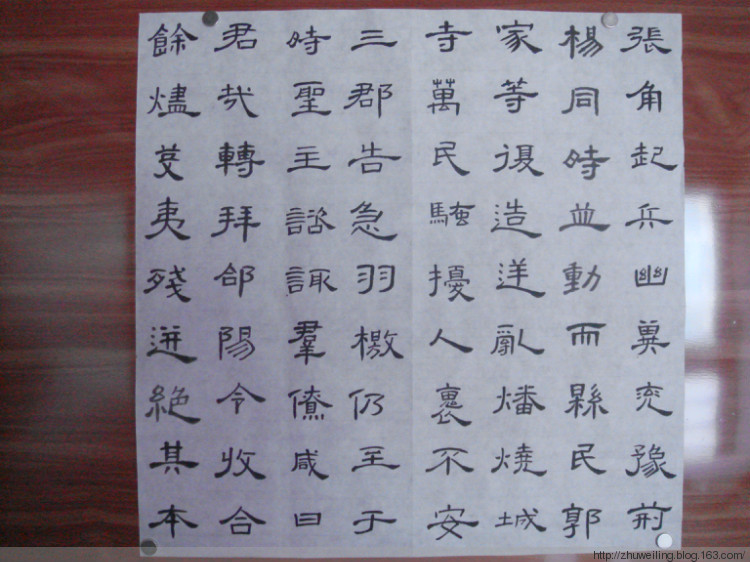 張角起兵幽冀兗豫荊
楊同時並動而縣民郭
家等復造逆亂燔燒城
寺萬民騷擾人裹不安
三郡告急羽檄仍至于
時聖主諮諏羣僚咸曰
君哉轉拜郃陽令收合
餘燼芟夷殘迸絕其本
http://zhuweiling.blog.163.com/